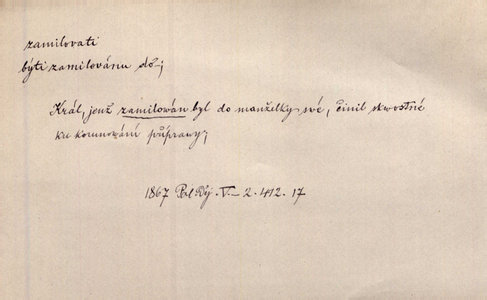 zamilovati
býti zamilovánu do –;
Král, jenž zamilován byl do manželky své, činil skvostné
ku korunování přípravy;
1867 Pal. Děj. V – 2. 412. 17